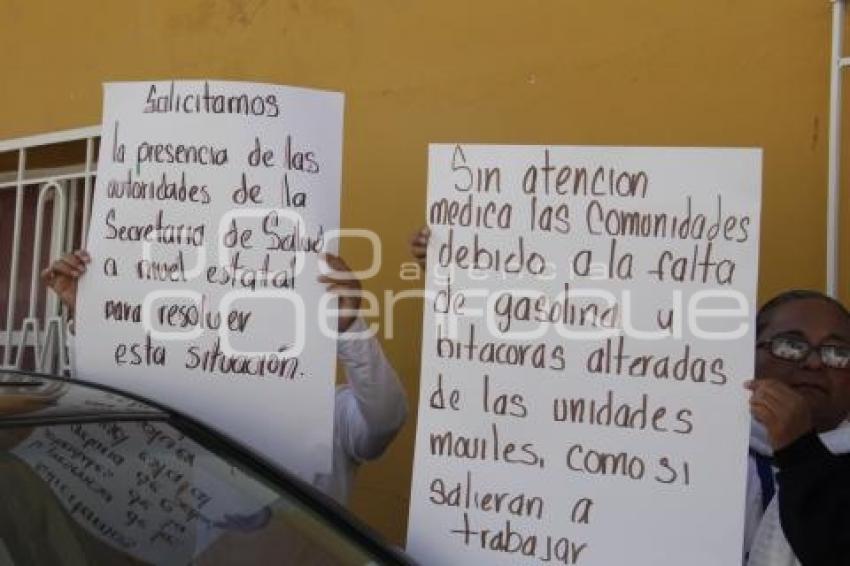 Salicitamos
la presencia de las
autoridades de la
Secretaria de Salud
a nivel estatal
para resolver
esta situación.
Sin atencion
medica las Comunidades
debido a la falta
de gasolina y
bitacoras alteradas
de las unidades
moviles, como si
salieran a
trabajar
agencia
enfoque